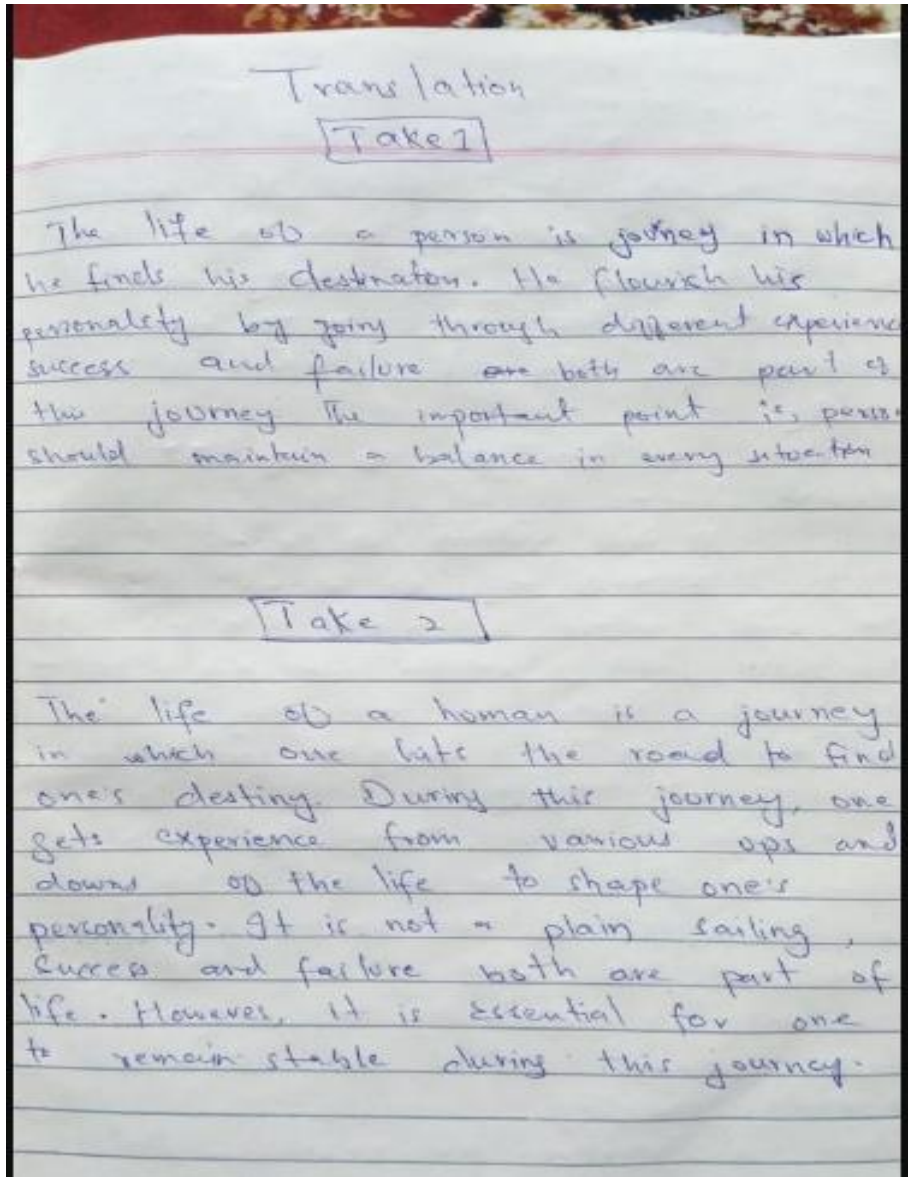 Translation
Take 1
The life of a person is journey in which
he finds his destinaton. He flourish his
personality by going through different experienc
success and failure both are part of
this journey The important point is, perso
should maintain a balance in every situation
Take 2
The life of a human is a journey
in which one the road to find
one's destiny. During this journey, one
gets experience from various ups and
downs of the life to shape one's
personality. It is not a plain sailing,
Success and failure both are part of
life. However, it is essential for one
to remain stable during this journey.